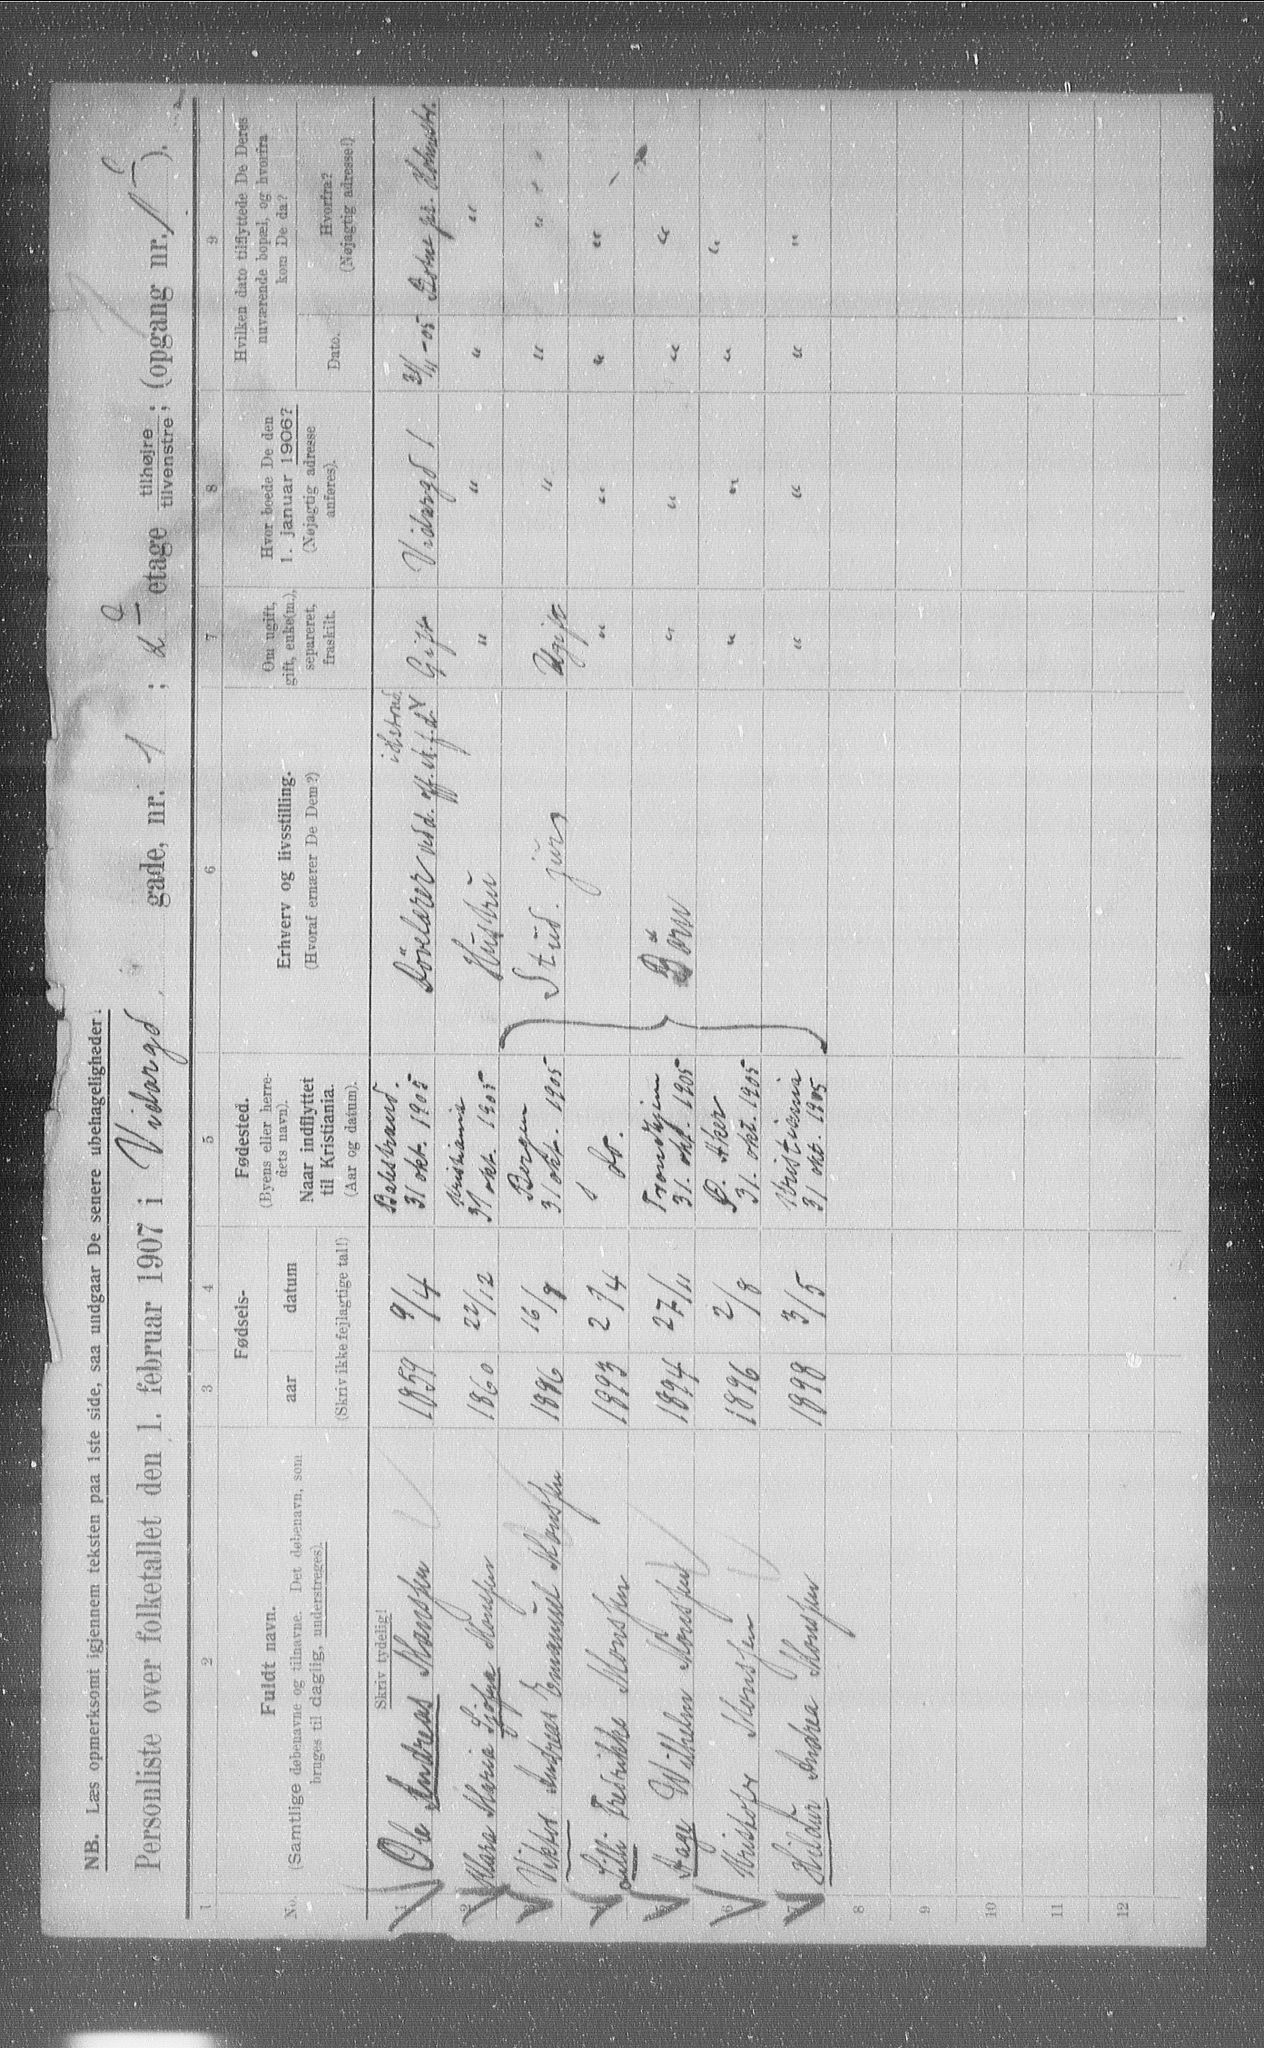 NB. Læs opmerksomt igjennem teksten paa 1ste side, saa undgaar De senere ubehageligheder.
Personliste over folketallet den 1. februar 1907 i Vidarsgd gade, nr. 1 ; 2 etage tilhøjre / tilvenstre; (opgang nr. 1).
1 2 3 4 5 6 7 8 9
No.
Fuldt navn.
(Samtlige døbenavne og tilnavne. Det døbenavn, som
bruges til daglig, understreges).
Fødsels-
aar datum
(Skriv ikke fejlagtige tal!)
Fødested.
(Byens eller herre-
dets navn).
Naar indflyttet
til Kristiania.
(Aar og datum).
Erhverv og livsstilling.
(Hvoraf ernærer De Dem?)
Om ugift,
gift, enke(m.),
separeret,
fraskilt.
Hvor boede De den
1. januar 1906?
(Nøjagtig adresse
anføres).
Hvilken dato tilflyttede De Deres
nuværende bopæl, og hvorfra
kom De da?
Dato.
Hvorfra?
(Nøjagtig adresse!)
Skriv tydelig!
1 Ole Andreas Monssen 1859 9/4 Balestrand. 31 okt. 1905 Dövelærer ved d. off. sk. f. d. Gift Vidarsgd 1 3/11-05 Botne pr. Holmestr.
2 Klara Maria Monssen 1860 22/12 Kristiania 31 okt. 1905 Hustru " " " "
3 Viktor Andreas Emanuel Monssen 1886 16/8 Bergen 31 okt. 1905 Stud. jur. Ugift " " "
4 Lilli Fredrikke Monssen 1893 2/4 do. " " " "
5 Aage Wilhelm Monssen 1894 27/11 Trondhjem 31. okt. 1905 Börn " " " "
6 Kristofer Monssen 1896 2/8 Ø. Aker 31. okt. 1905 " " " "
7 Hildur Andrea Monssen 1898 3/5 Kristiania 31 okt. 1905 " " " "
8
9
10
11
12